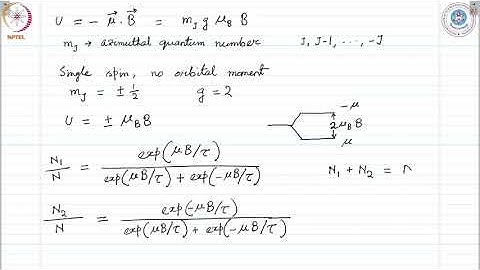 NPTEL
U = - μ⃗ · B⃗ = m_J g μ_B B
m_J → azimuthal quantum number J, J-1, ..., -J
Single spin, no orbital moment
m_J = ± 1/2 g = 2
U = ± μ_B B
-μ
2μ_B B
μ
N₁/N = exp(μB/τ) / (exp(μB/τ) + exp(-μB/τ)) N₁ + N₂ = N
N₂/N = exp(-μB/τ) / (exp(μB/τ) + exp(-μB/τ))